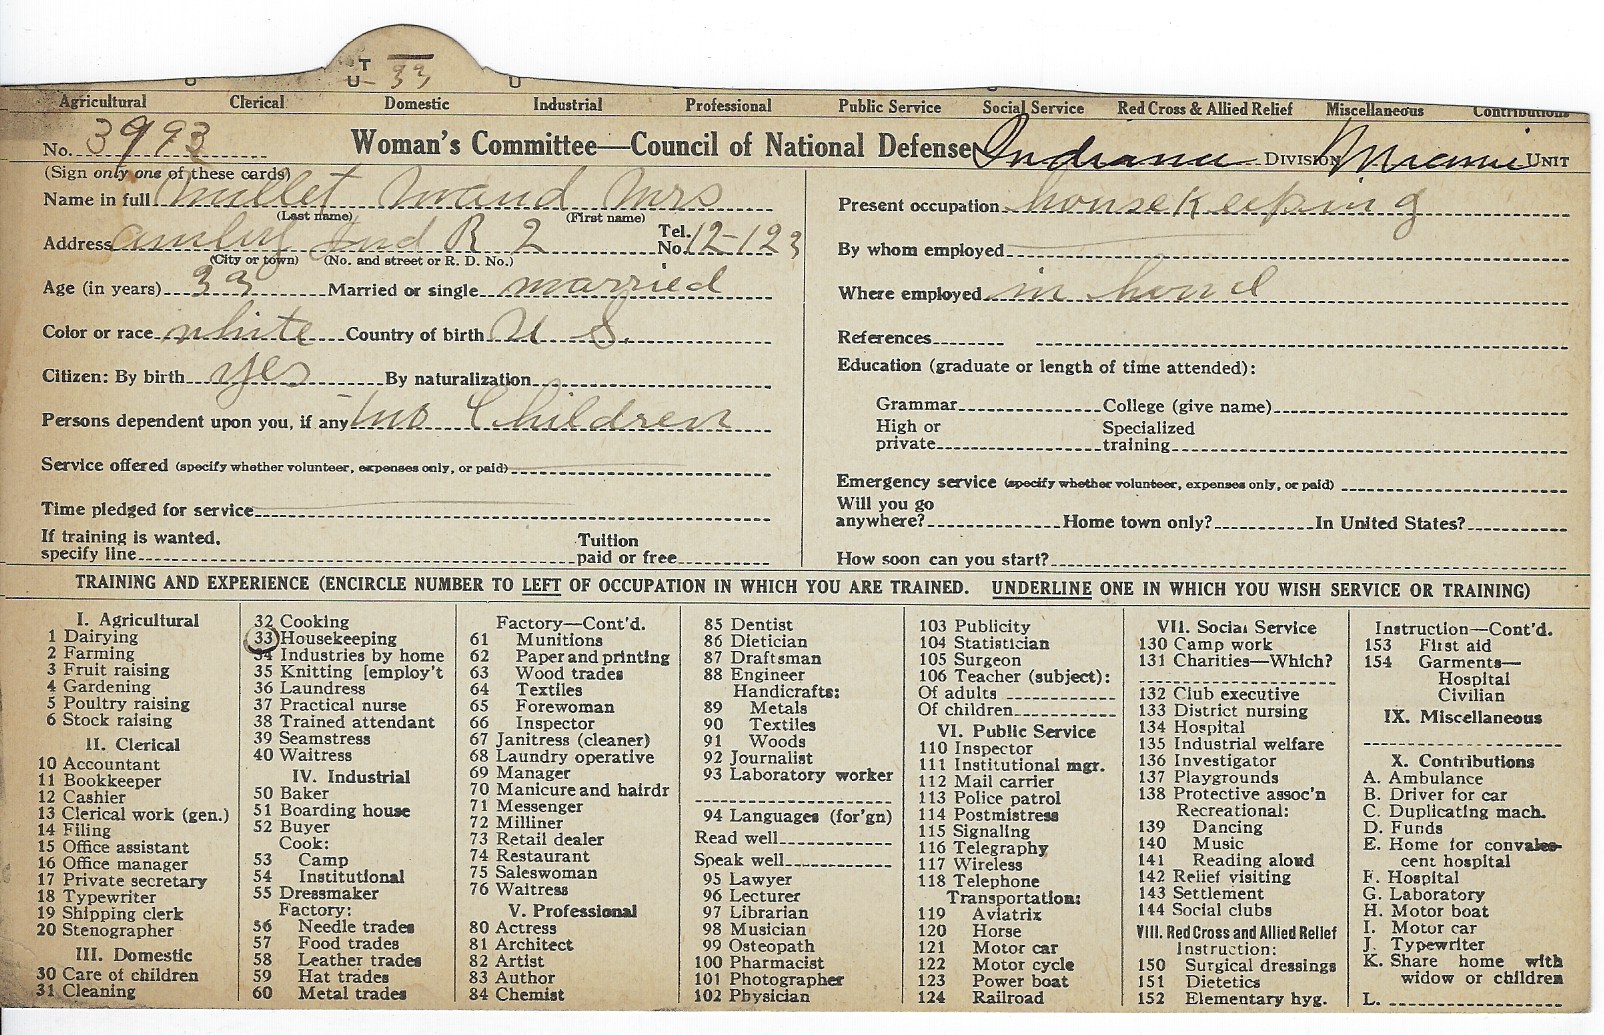 T
U- 33
Agricultural Clerical Domestic Industrial Professional Public Service Social Service Red Cross & Allied Relief Miscellaneous Contributions
No. 3993 Woman's Committee—Council of National Defense Indiana DIVISION Miami UNIT
(Sign only one of these cards)
Name in full Millet Maud Mrs
(Last name) (First name)
Address Amboy Ind R 2 Tel. No. 12-123
(City or town) (No. and street or R. D. No.)
Age (in years) 33 Married or single married
Color or race white Country of birth U S.
Citizen: By birth yes By naturalization
Persons dependent upon you, if any two Children
Service offered (specify whether volunteer, expenses only, or paid)
Time pledged for service
If training is wanted, specify line Tuition paid or free
Present occupation housekeeping
By whom employed
Where employed in
References
Education (graduate or length of time attended):
Grammar College (give name)
High or private Specialized training
Emergency service (specify whether volunteer, expenses only, or paid)
Will you go anywhere? Home town only? In United States?
How soon can you start?
TRAINING AND EXPERIENCE (ENCIRCLE NUMBER TO LEFT OF OCCUPATION IN WHICH YOU ARE TRAINED. UNDERLINE ONE IN WHICH YOU WISH SERVICE OR TRAINING)
I. Agricultural
1 Dairying
2 Farming
3 Fruit raising
4 Gardening
5 Poultry raising
6 Stock raising
II. Clerical
10 Accountant
11 Bookkeeper
12 Cashier
13 Clerical work (gen.)
14 Filing
15 Office assistant
16 Office manager
17 Private secretary
18 Typewriter
19 Shipping clerk
20 Stenographer
III. Domestic
30 Care of children
31 Cleaning
32 Cooking
33 Housekeeping
34 Industries by home
35 Knitting [employ't
36 Laundress
37 Practical nurse
38 Trained attendant
39 Seamstress
40 Waitress
IV. Industrial
50 Baker
51 Boarding house
52 Buyer
Cook:
53 Camp
54 Institutional
55 Dressmaker
Factory:
56 Needle trades
57 Food trades
58 Leather trades
59 Hat trades
60 Metal trades
Factory—Cont'd.
61 Munitions
62 Paper and printing
63 Wood trades
64 Textiles
65 Forewoman
66 Inspector
67 Janitress (cleaner)
68 Laundry operative
69 Manager
70 Manicure and hairdr
71 Messenger
72 Milliner
73 Retail dealer
74 Restaurant
75 Saleswoman
76 Waitress
V. Professional
80 Actress
81 Architect
82 Artist
83 Author
84 Chemist
85 Dentist
86 Dietician
87 Draftsman
88 Engineer
Handicrafts:
89 Metals
90 Textiles
91 Woods
92 Journalist
93 Laboratory worker
94 Languages (for'gn)
Read well
Speak well
95 Lawyer
96 Lecturer
97 Librarian
98 Musician
99 Osteopath
100 Pharmacist
101 Photographer
102 Physician
103 Publicity
104 Statistician
105 Surgeon
106 Teacher (subject):
Of adults
Of children
VI. Public Service
110 Inspector
111 Institutional mgr.
112 Mail carrier
113 Police patrol
114 Postmistress
115 Signaling
116 Telegraphy
117 Wireless
118 Telephone
Transportation:
119 Aviatrix
120 Horse
121 Motor car
122 Motor cycle
123 Power boat
124 Railroad
VII. Social Service
130 Camp work
131 Charities—Which?
132 Club executive
133 District nursing
134 Hospital
135 Industrial welfare
136 Investigator
137 Playgrounds
138 Protective assoc'n
Recreational:
139 Dancing
140 Music
141 Reading aloud
142 Relief visiting
143 Settlement
144 Social clubs
VIII. Red Cross and Allied Relief
Instruction:
150 Surgical dressings
151 Dietetics
152 Elementary hyg.
Instruction—Cont'd.
153 First aid
154 Garments—
Hospital
Civilian
IX. Miscellaneous
X. Contributions
A. Ambulance
B. Driver for car
C. Duplicating mach.
D. Funds
E. Home for convales-
cent hospital
F. Hospital
G. Laboratory
H. Motor boat
I. Motor car
J. Typewriter
K. Share home with
widow or children
L.